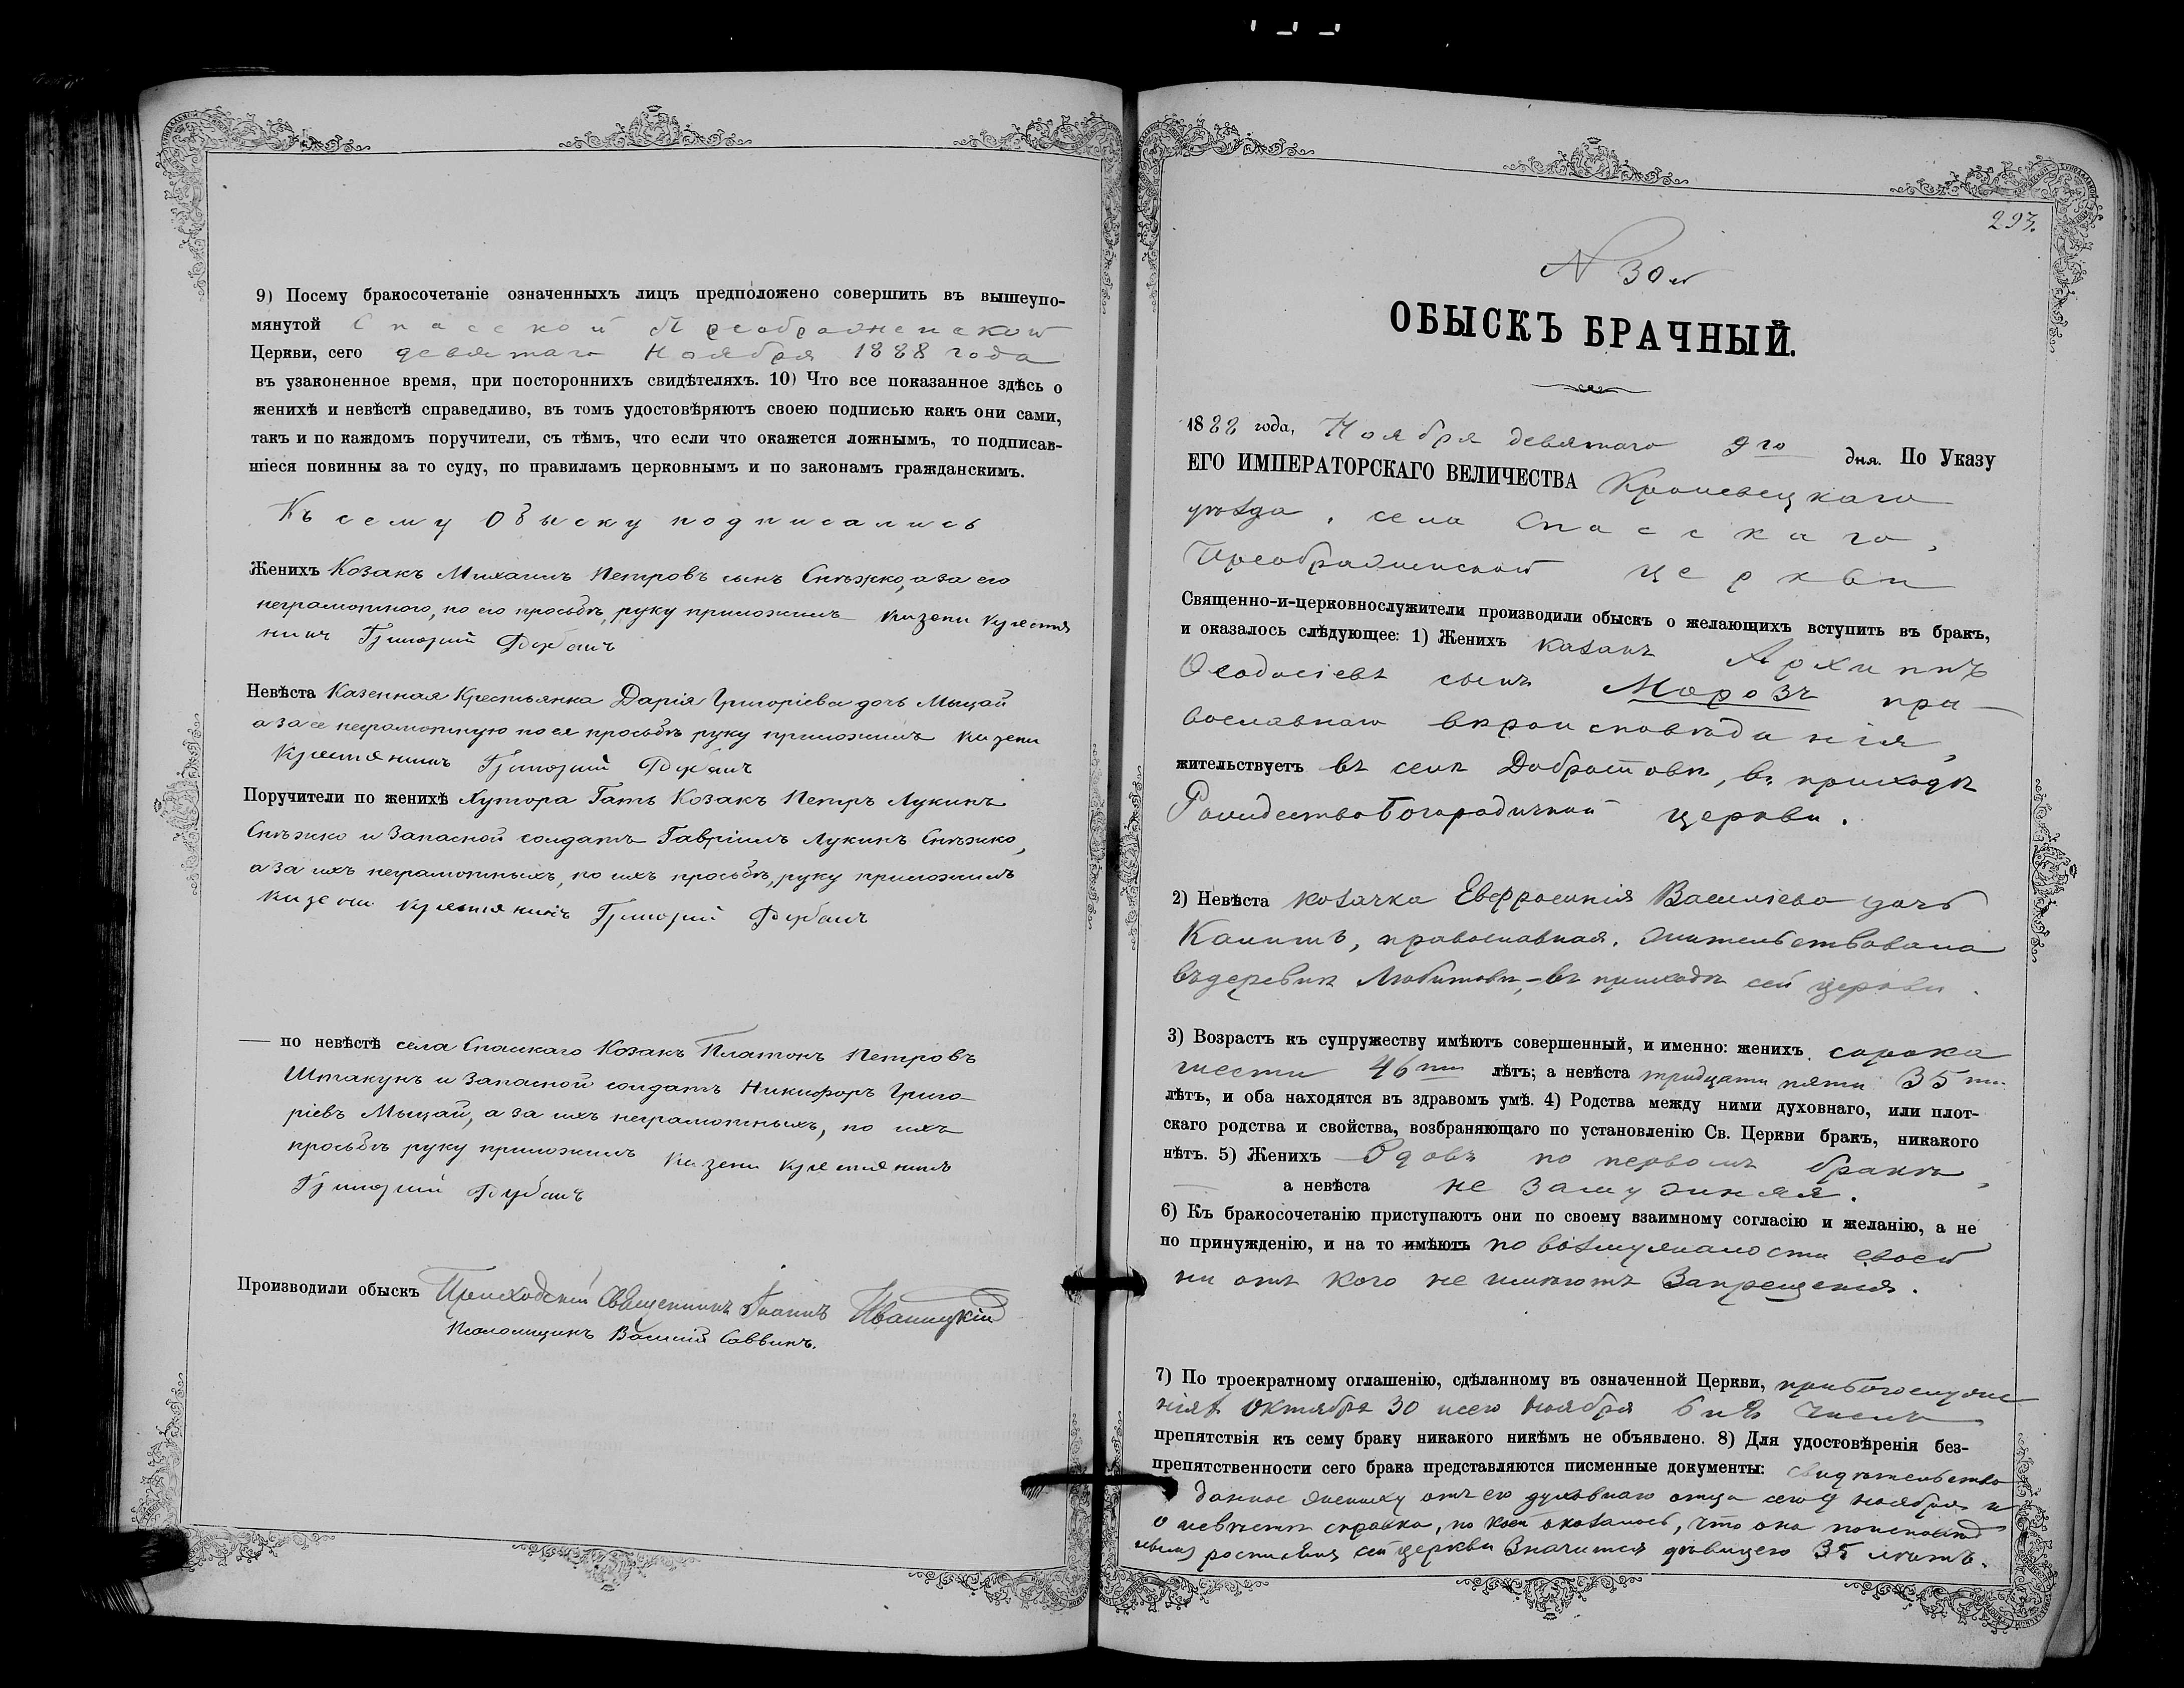 9) Посему бракосочетаніе означенныхъ лицъ предположено совершить въ вышеупо-
мянутой Спасской Преображенской
Церкви, сего девятаго Ноября 1888 года
въ узаконенное время, при постороннихъ свидѣтеляхъ. 10) Что все показанное здѣсь о
женихѣ и невѣстѣ справедливо, въ томъ удостовѣряютъ своею подписью какъ они сами,
такъ и по каждомъ поручители, съ тѣмъ, что если что окажется ложнымъ, то подписав-
шіеся повинны за то суду, по правиламъ церковнымъ и по законамъ гражданскимъ.
Къ сему Обыску подписались
Женихъ Козакъ Михаилъ Петровъ сынъ Снѣжко, а за его
неграмотного, по его просьбѣ, руку приложилъ казени крестя
нинъ Григорий
Невѣста Казенная Крестьянка Дарія Григоріева дочь Мыцай
а за ее неграмотную по ея просьбѣ руку приложилъ казени
Крестянинъ Григорий
Поручители по женихѣ Хутора Гать Козакъ Петръ Лукинъ
Снѣжко и Запасной солдатъ Гавріилъ Лукинъ Снѣжко,
а за ихъ неграмотныхъ, по ихъ просьбѣ, руку приложилъ
казени крестянинъ Григорий
— по невѣстѣ села Спаскаго Козакъ Платонъ Петровъ
Штакунъ и Запасной солдатъ Никифоръ Григо-
ріевъ Мыцай, а за ихъ неграмотныхъ, по ихъ
просьбѣ руку приложилъ казени крестянинъ
Григорий
Производили обыскъ Приходскій Священникъ Іоаннъ Иваницкій
Псаломщикъ Василій Саввинъ.
223.
N 30й
ОБЫСКЪ БРАЧНЫЙ.
1888 года, Ноября девятаго 9го дня. По Указу
ЕГО ИМПЕРАТОРСКАГО ВЕЛИЧЕСТВА Кролевецкаго
уѣзда, села Спасскаго,
Преображенской церкви
Священно-и-церковнослужители производили обыскъ о желающихъ вступить въ бракъ,
и оказалось слѣдующее: 1) Женихъ казакъ Архипъ
Ѳеодосіевъ сынъ Морозъ пра-
вославнаго вѣроисповѣданія,
жительствуетъ въ селѣ Добротовѣ, въ приходѣ
РождествоБогородичной церкви.
2) Невѣста козачка Евфросинія Василіева дочь
Калишъ, православная. Жительствовала
въ деревнѣ Любитовѣ, - въ приходѣ сей церкви.
3) Возрастъ къ супружеству имѣютъ совершенный, и именно: женихъ сорока
шести 46ти лѣтъ; а невѣста тридцати пяти 35ти
лѣтъ, и оба находятся въ здравомъ умѣ. 4) Родства между ними духовнаго, или плот-
скаго родства и свойства, возбраняющаго по установленію Св. Церкви бракъ, никакого
нѣтъ. 5) Женихъ Вдовъ по первомъ бракѣ,
— а невѣста не замужняя.
6) Къ бракосочетанію приступаютъ они по своему взаимному согласію и желанію, а не
по принужденію, и на то имѣютъ по возмужалости своей
ни отъ кого не имѣютъ Запрещенія.
7) По троекратному оглашенію, сдѣланному въ означенной Церкви, при богослуже
ніях Октября 30 и сего ноября 6 и 8 числъ
препятствія къ сему браку никакого никѣмъ не объявлено. 8) Для удостовѣренія без-
препятственности сего брака представляются писменные документы: свидѣтельство
данное жениху отъ его духовнаго отца сего 9 ноября и
о невѣстѣ справка, по коей оказалось, что она по исповѣд
нымъ росписямъ сей церкви Значится дѣвицею 35 лѣтъ.